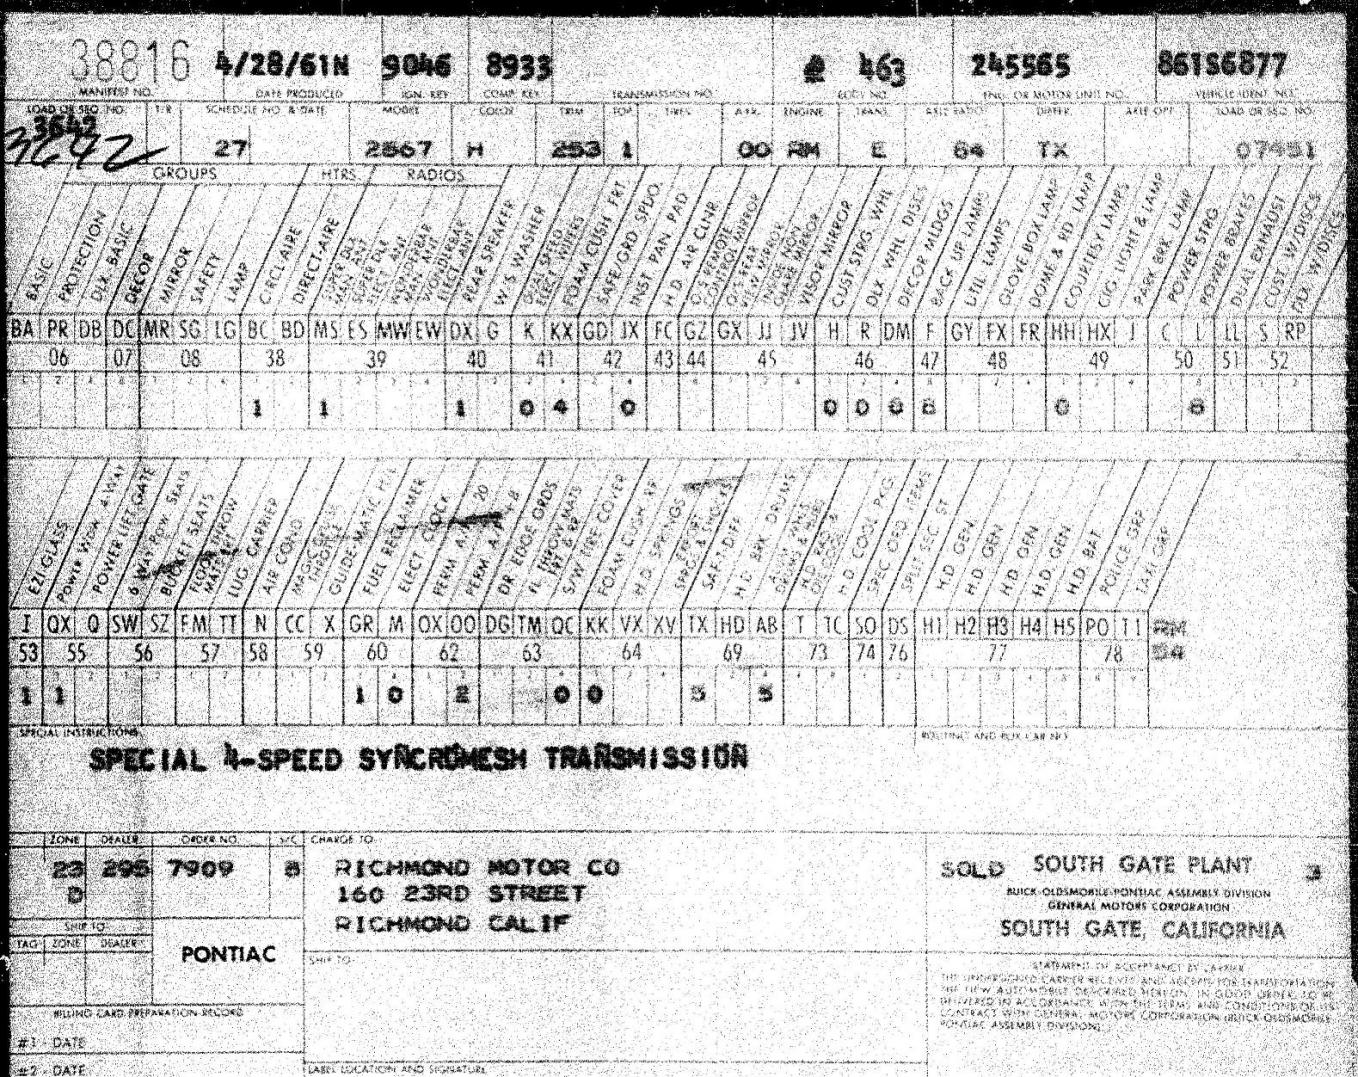 38816 4/28/61N 9046 8933 463 245565 861S6877
MANIFEST NO. DATE PRODUCED IGN. KEY COMP. KEY TRANSMISSION NO. BODY NO. ENG. OR MOTOR UNIT NO. VEHICLE IDENT. NO.
LOAD OR SEQ. NO. T/R SCHEDULE NO. & DATE MODEL COLOR TRIM TOP TIRES ENGINE TRANS. AXLE RATIO DIFFER. AXLE OPT. LOAD OR SEQ. NO.
3642
3642 27 2567 H 253 1 00 RM E 64 TX 07451
GROUPS HTRS. RADIOS
BASIC PROTECTION DLX. BASIC DECOR MIRROR SAFETY LAMP CIRCL-AIRE DIRECT-AIRE REAR SPEAKER W/S WASHER FOAM CUSH FRT. SAFE/GRD SPDO. INST. PAN PAD H.D. AIR CLNR. VISOR MIRROR CUST STRG. WHL DLX WHL DISCS DECOR MLDGS BACK UP LAMPS UTIL LAMPS GLOVE BOX LAMP DOME & RD LAMP COURTESY LAMPS CIG. LIGHT & LAMP PARK BRK. LAMP POWER STRG POWER BRAKES DUAL EXHAUST CUST. W/DISCS DLX. W/DISCS
BA PR DB DC MR SG LG BC BD MS ES MW EW DX G K KX GD JX FC GZ GX JJ JV H R DM F GY FX FR HH HX J C L LL S RP
06 07 08 38 39 40 41 42 43 44 45 46 47 48 49 50 51 52
1 1 1 0 4 0 0 0 0 8 0 8
EZI-GLASS POWER WDW. 4-WAY POWER LIFT GATE 6 WAY POW. SEATS BUCKET SEATS FLOOR THROW MATS LUG. CARRIER AIR COND GUIDE-MATIC FUEL RECLAIMER ELECT CLOCK DR EDGE GRDS S/W TIRE COVER FOAM CUSH RR H.D. SPRINGS SAF-T-DIFF H.D. BRK DRUMS H.D. COOL PKG. SPEC. ORD. ITEMS SPLIT SEC. ST. H.D. GEN H.D. GEN H.D. GEN H.D. GEN H.D. BAT POLICE GRP TAXI GRP
I QX Q SW SZ FM TT N CC X GR M OX OO DG TM QC KK VX XV TX HD AB T TC SO DS H1 H2 H3 H4 H5 PO T1 RM
53 55 56 57 58 59 60 62 63 64 69 73 74 76 77 78 54
1 1 1 0 2 0 0 5 5
SPECIAL INSTRUCTIONS ROUTING AND BOX CAR NO.
SPECIAL 4-SPEED SYNCROMESH TRANSMISSION
ZONE DEALER ORDER NO. S/C CHARGE TO
23 295 7909 8 RICHMOND MOTOR CO SOLD SOUTH GATE PLANT 3
D 160 23RD STREET BUICK-OLDSMOBILE-PONTIAC ASSEMBLY DIVISION
GENERAL MOTORS CORPORATION
RICHMOND CALIF SOUTH GATE, CALIFORNIA
SHIP TO
TAG ZONE DEALER
PONTIAC SHIP TO
STATEMENT OF ACCEPTANCE BY CARRIER
THE UNDERSIGNED CARRIER RECEIVES AND ACCEPTS FOR TRANSPORTATION
THE NEW AUTOMOBILE DESCRIBED HEREON, IN GOOD ORDER, TO BE
DELIVERED IN ACCORDANCE WITH THE TERMS AND CONDITIONS OF ITS
CONTRACT WITH GENERAL MOTORS CORPORATION (BUICK-OLDSMOBILE-
PONTIAC ASSEMBLY DIVISION)
BILLING CARD PREPARATION RECORD
#1 - DATE
#2 - DATE LABEL LOCATION AND SIGNATURE